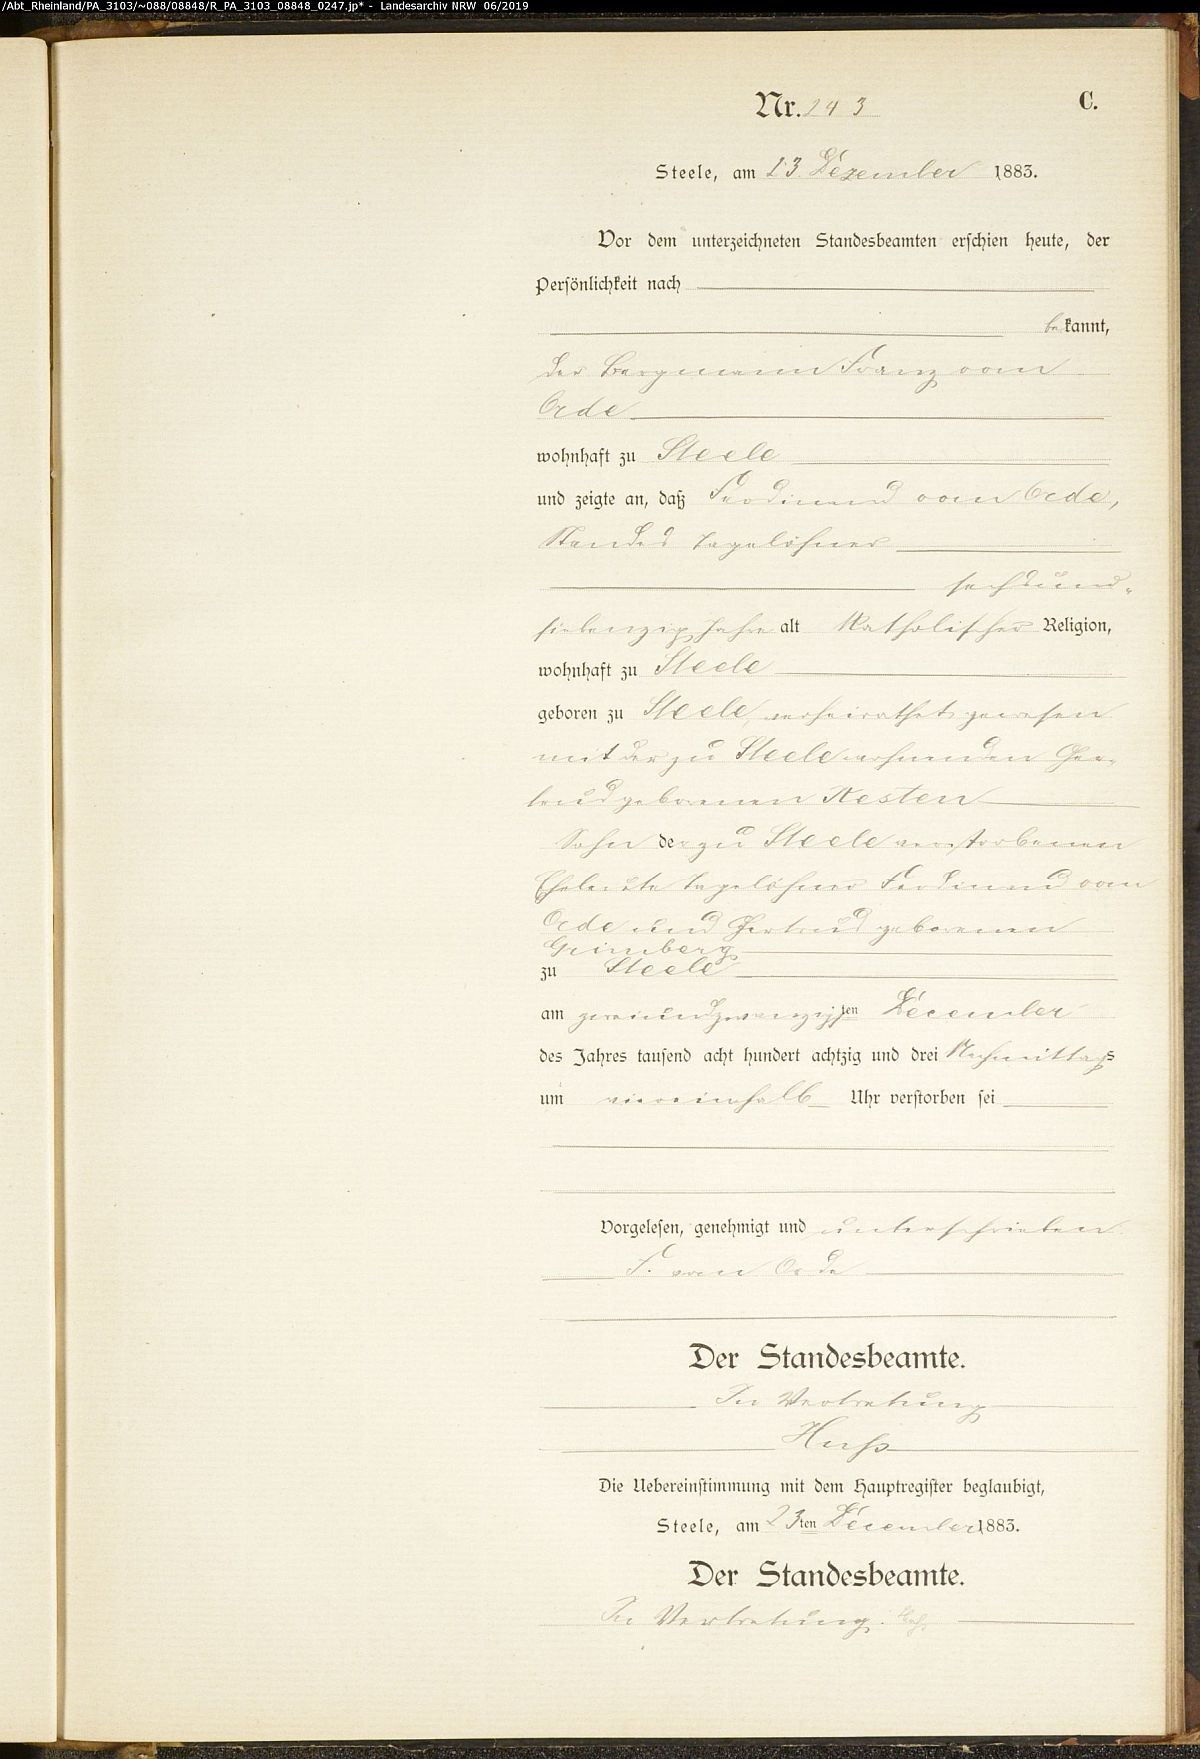 /Abt_Rheinland/PA_3103/~088/08848/R_PA_3103_08848_0247.jp* - Landesarchiv NRW 06/2019
Nr. 243 C.
Steele, am 23. Dezember 1883.
Vor dem unterzeichneten Standesbeamten erschien heute, der
Persönlichkeit nach
bekannt,
der Bergmann Franz vom
Orde
wohnhaft zu Steele
und zeigte an, daß Ferdinand vom Orde,
Standes Tagelöhner
sechsund-
siebenzig Jahre alt katholischer Religion,
wohnhaft zu Steele
geboren zu Steele, verheirathet gewesen
mit der zu Steele wohnenden Ger-
trud geborenen Kesten
Sohn der zu Steele verstorbenen
Eheleute Tagelöhner Ferdinand vom
Orde und Gertrud geborenen
Grimberg
zu Steele
am zweiundzwanzigsten December
des Jahres tausend acht hundert achtzig und drei Nachmittags
um viereinhalb Uhr verstorben sei
Vorgelesen, genehmigt und unterschrieben
F. vom Orde
Der Standesbeamte.
In Vertretung
Huß
Die Uebereinstimmung mit dem Hauptregister beglaubigt,
Steele, am 23ten December 1883.
Der Standesbeamte.
In Vertretung.